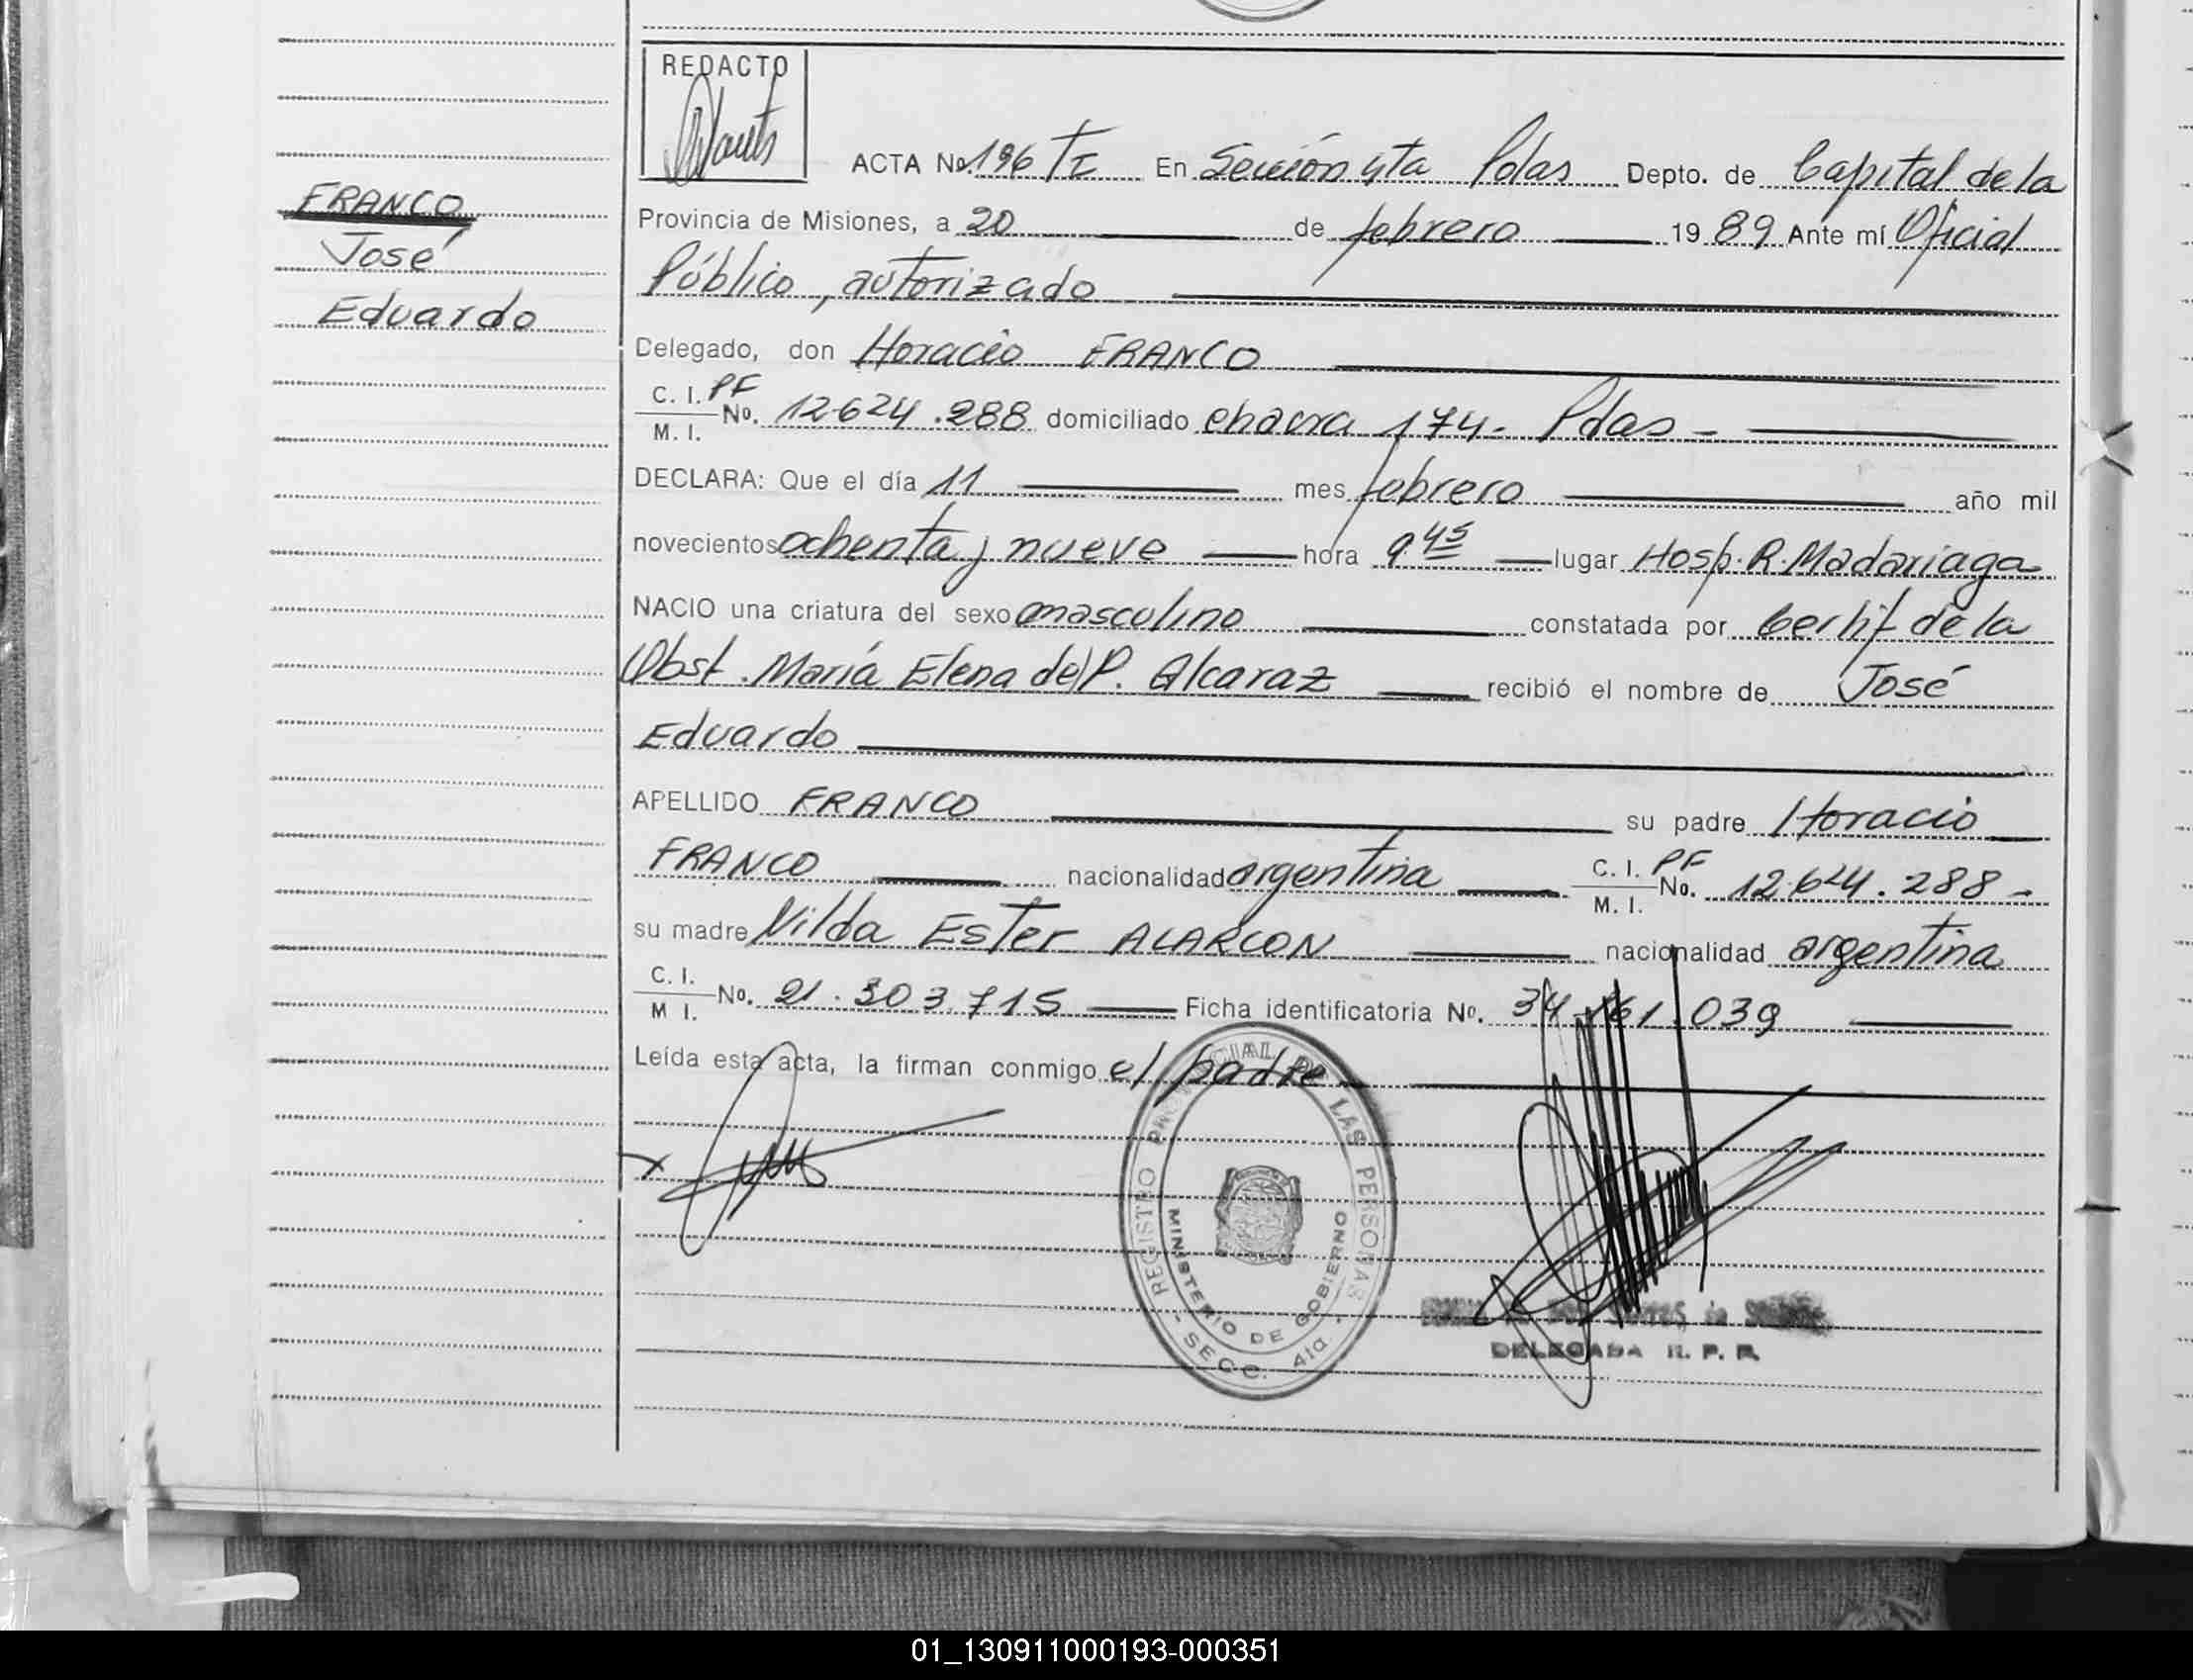 REDACTO
ACTA No. 196 TI En Sección 4ta Pdas Depto. de Capital de la
FRANCO
José
Eduardo
Provincia de Misiones, a 20 de febrero 1989 Ante mí Oficial
Público, autorizado
Delegado, don Horacio FRANCO
C. I. PF
M. I. No. 12.624.288 domiciliado chacra 174- Pdas -
DECLARA: Que el día 11 mes febrero año mil
novecientos ochenta y nueve hora 9.45 lugar Hosp. R. Madariaga
NACIO una criatura del sexo masculino constatada por Certif de la
Obst. María Elena del P. Alcaraz recibió el nombre de José
Eduardo
APELLIDO FRANCO su padre Horacio
FRANCO nacionalidad argentina C. I. PF
M. I. No. 12.624.288-
su madre Nilda Ester ALARCON nacionalidad argentina
C. I.
M I. No. 21.303.715 Ficha identificatoria No. 34.161.039
Leída esta acta, la firman conmigo el padre
REGISTRO PROVINCIAL DE LAS PERSONAS
MINISTERIO DE GOBIERNO
- SECC. 4ta. -
DELEGADA R. P. P.
01_130911000193-000351